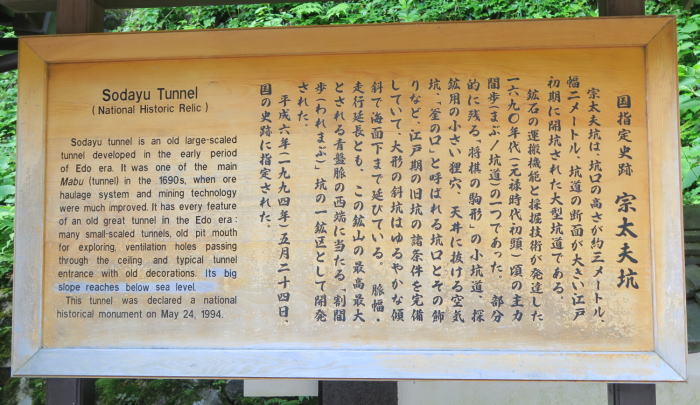 Sodayu Tunnel
( National Historic Relic )
Sodayu tunnel is an old large-scaled
tunnel developed in the early period
of Edo era. It was one of the main
Mabu (tunnel) in the 1690s, when ore
haulage system and mining technology
were much improved. It has every feature
of an old great tunnel in the Edo era :
many small-scaled tunnels, old pit mouth
for exploring, ventilation holes passing
through the ceiling, and typical tunnel
entrance with old decorations. Its big
slope reaches below sea level.
This tunnel was declared a national
historical monument on May 24, 1994.
国指定史跡 宗太夫坑
宗太夫坑は、坑口の高さが約三メートル、
幅二メートル、坑道の断面が大きい江戸
初期に開坑された大型坑道である。
鉱石の運搬機能と採掘技術が発達した
一六九〇年代(元禄時代初頭)頃の主力
間歩(まぶ/坑道)の一つであった。部分
的に残る「将棋の駒形」の小坑道、探
鉱用の小さい狸穴、天井に抜ける空気
坑、「釜の口」と呼ばれる坑口とその飾
りなど、江戸期の旧坑の諸条件を完備
していて、大形の斜坑はゆるやかな傾
斜で海面下まで延びている。 脈幅・
走行延長とも、この鉱山の最高最大
とされる青盤脈の西端に当たる、「割間
歩(われまぶ)」坑の一鉱区として開発
された。
平成六年(一九九四年)五月二十四日、
国の史跡に指定された。